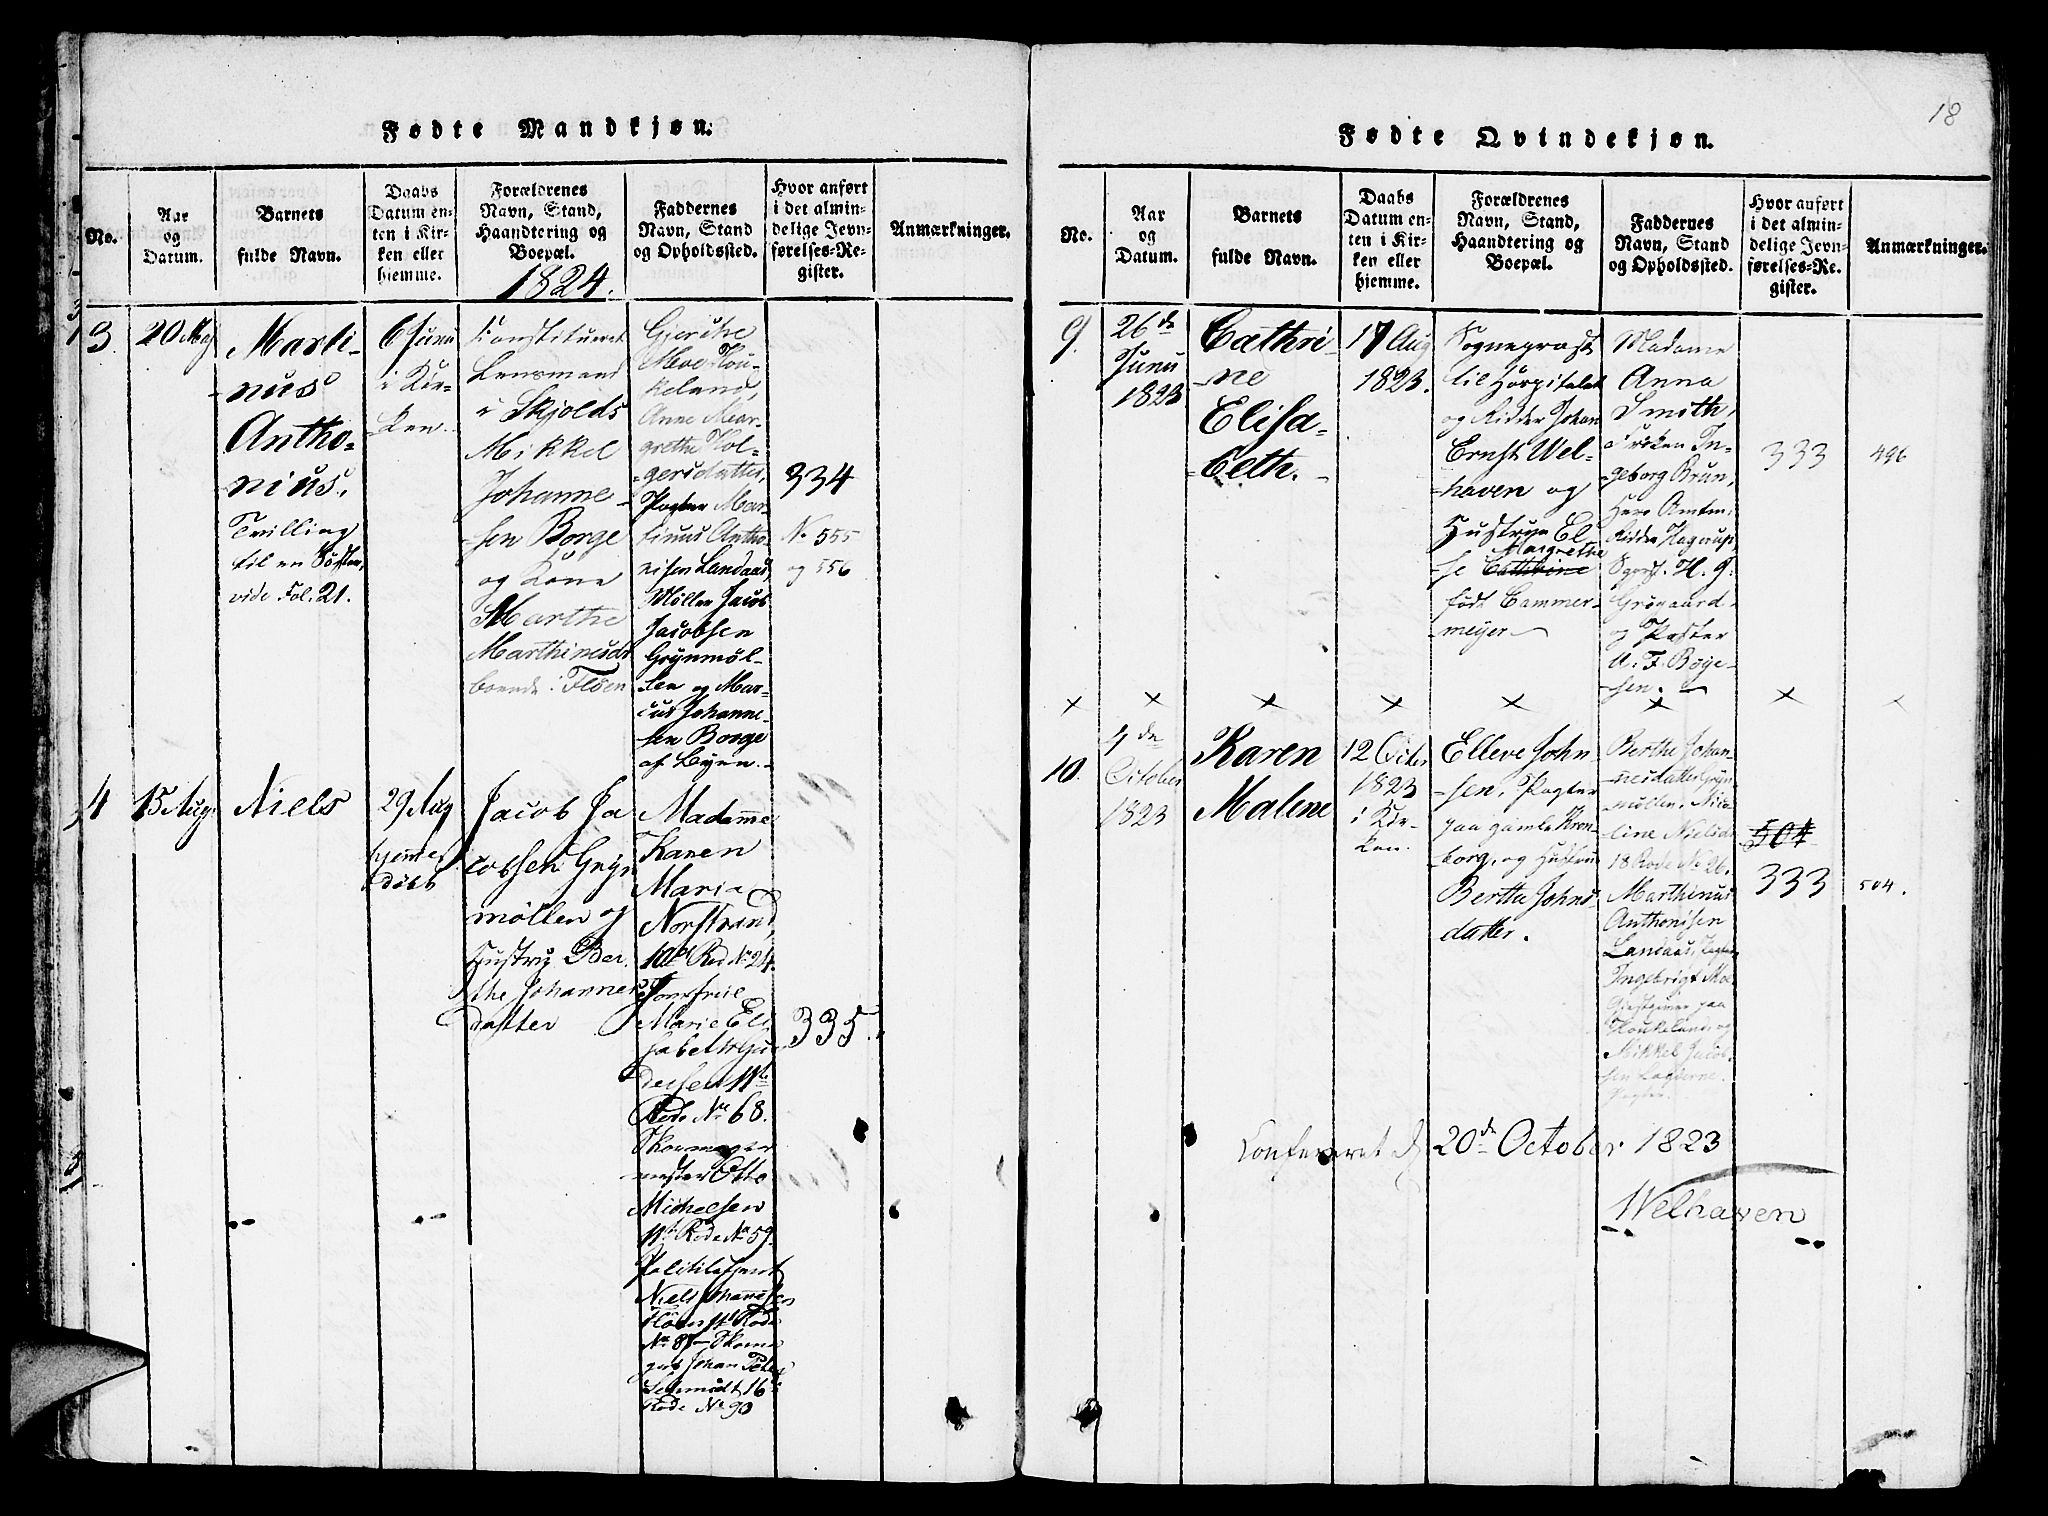 Fødte Mandkjøn.
No.
Aar
og
Datum.
Barnets
fulde Navn.
Daabs
Datum en-
ten i Kir-
ken eller
hjemme.
Forældrenes
Navn, Stand,
Haandtering og
Boepæl.
1824.
Faddernes
Navn, Stand
og Opholdssted.
Hvor anført
i det almin-
delige Jevn-
førelses-Re-
gister.
Anmærkninger.
3.
20 Maj
Marti-
-nus
Antho-
-nius,
Tvilling
til en Søster,
vide Fol. 21.
6 Junii
i Kir-
ken.
Konstitueret
Lensmand
i Skjolds
Mikkel
Johanne-
-sen Borge
og Kone
Marthe
Marthinusdr
boende i Floen
Gjertke
Moe Hou-
keland,
Anne Mar-
grethe Hol-
-gersdatter,
Pagter Mar-
tinus Antho-
nisen Landaas,
Møller Jacob
Jacobsen
Grynmøl-
len og Mar-
cus Johanne-
sen Borge
af Byen.
334
No 555
og 556
4
15 Aug.
Niels
29 Aug
hjemme
døbt
Jacob Ja
cobsen Gryn
møllen og
Hustru Ber
the Johannes
datter
Madamme
Karen
Maria
Norstrand,
10de Rod No 24.
Jomfrue
Marie Eli
sabeth
11te
Rode No 68.
Skomager
mester Otto
Michelsen
11te Rode No 59
Politibetjent
Niels Johannesen
Rode
No 8 - Skoma
ger Johan Peter
Schmidt 16de
Rode No 90
335.
18
Fødte Qvindekjøn.
No.
Aar
og
Datum.
Barnets
fulde Navn.
Daabs
Datum en-
ten i Kir-
ken eller
hjemme.
Forældrenes
Navn, Stand,
Haandtering og
Boepæl.
Faddernes
Navn, Stand
og Opholdssted.
Hvor anført
i det almin-
delige Jevn-
førelses-Re-
gister.
Anmærkninger.
9.
26de
Junii
1823
Cathri-
-ne
Elisa-
-beth.
17 Aug
1823.
Sognepræst
til Hospitalet
og Ridder Johan
Ernst Wel-
-haven og
Hustrue El-
Margrethe
se Cathrine
født Cammer-
meyer
Madame
Anna
Smith,
Frøken In-
geborg Brun,
Herr Amtm.
Ridder Hagerup,
H. G.
Grøgaard
og Pastor
U. F. Bøye-
sen.
333
496
10.
4de
October
1823
Karen
Malene
12 Octbr
1823
i Kir-
ken.
Elleve John-
-sen, Pagter
paa gamle Kron-
borg, og Hustrue
Berthe Johns-
datter.
Berthe Johan-
nesdatter Gryn
møllen, Nico
line Nielsd.
18 Rode No 26.
Marthinus
Anthonisen
Landaas, Pagter
Ingebrigt Moe
paa
Houkeland, og
Mikkel Jacob-
sen
Pagter.
504
333
504.
Confereret d 20de October 1823
Welhaven